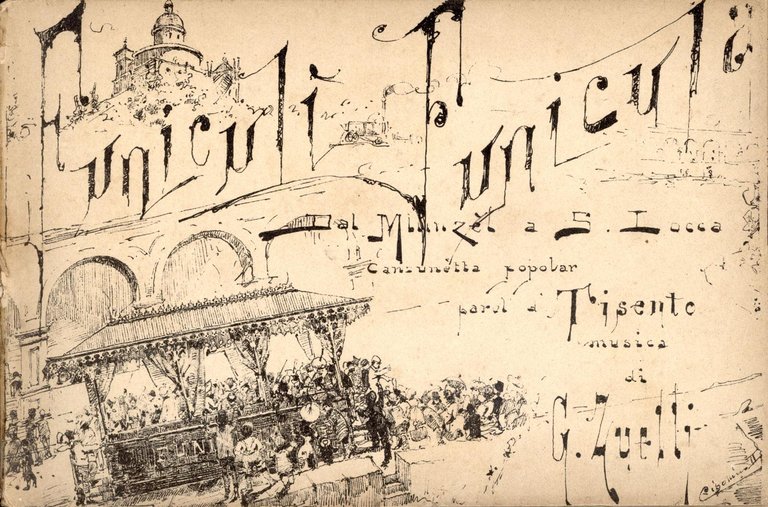 Funiculì Funiculà
Dal Meloncèl a S. Locca
Canzunètta popolar
parol d Tisento
musica
di
G. Zuelli
FUNI